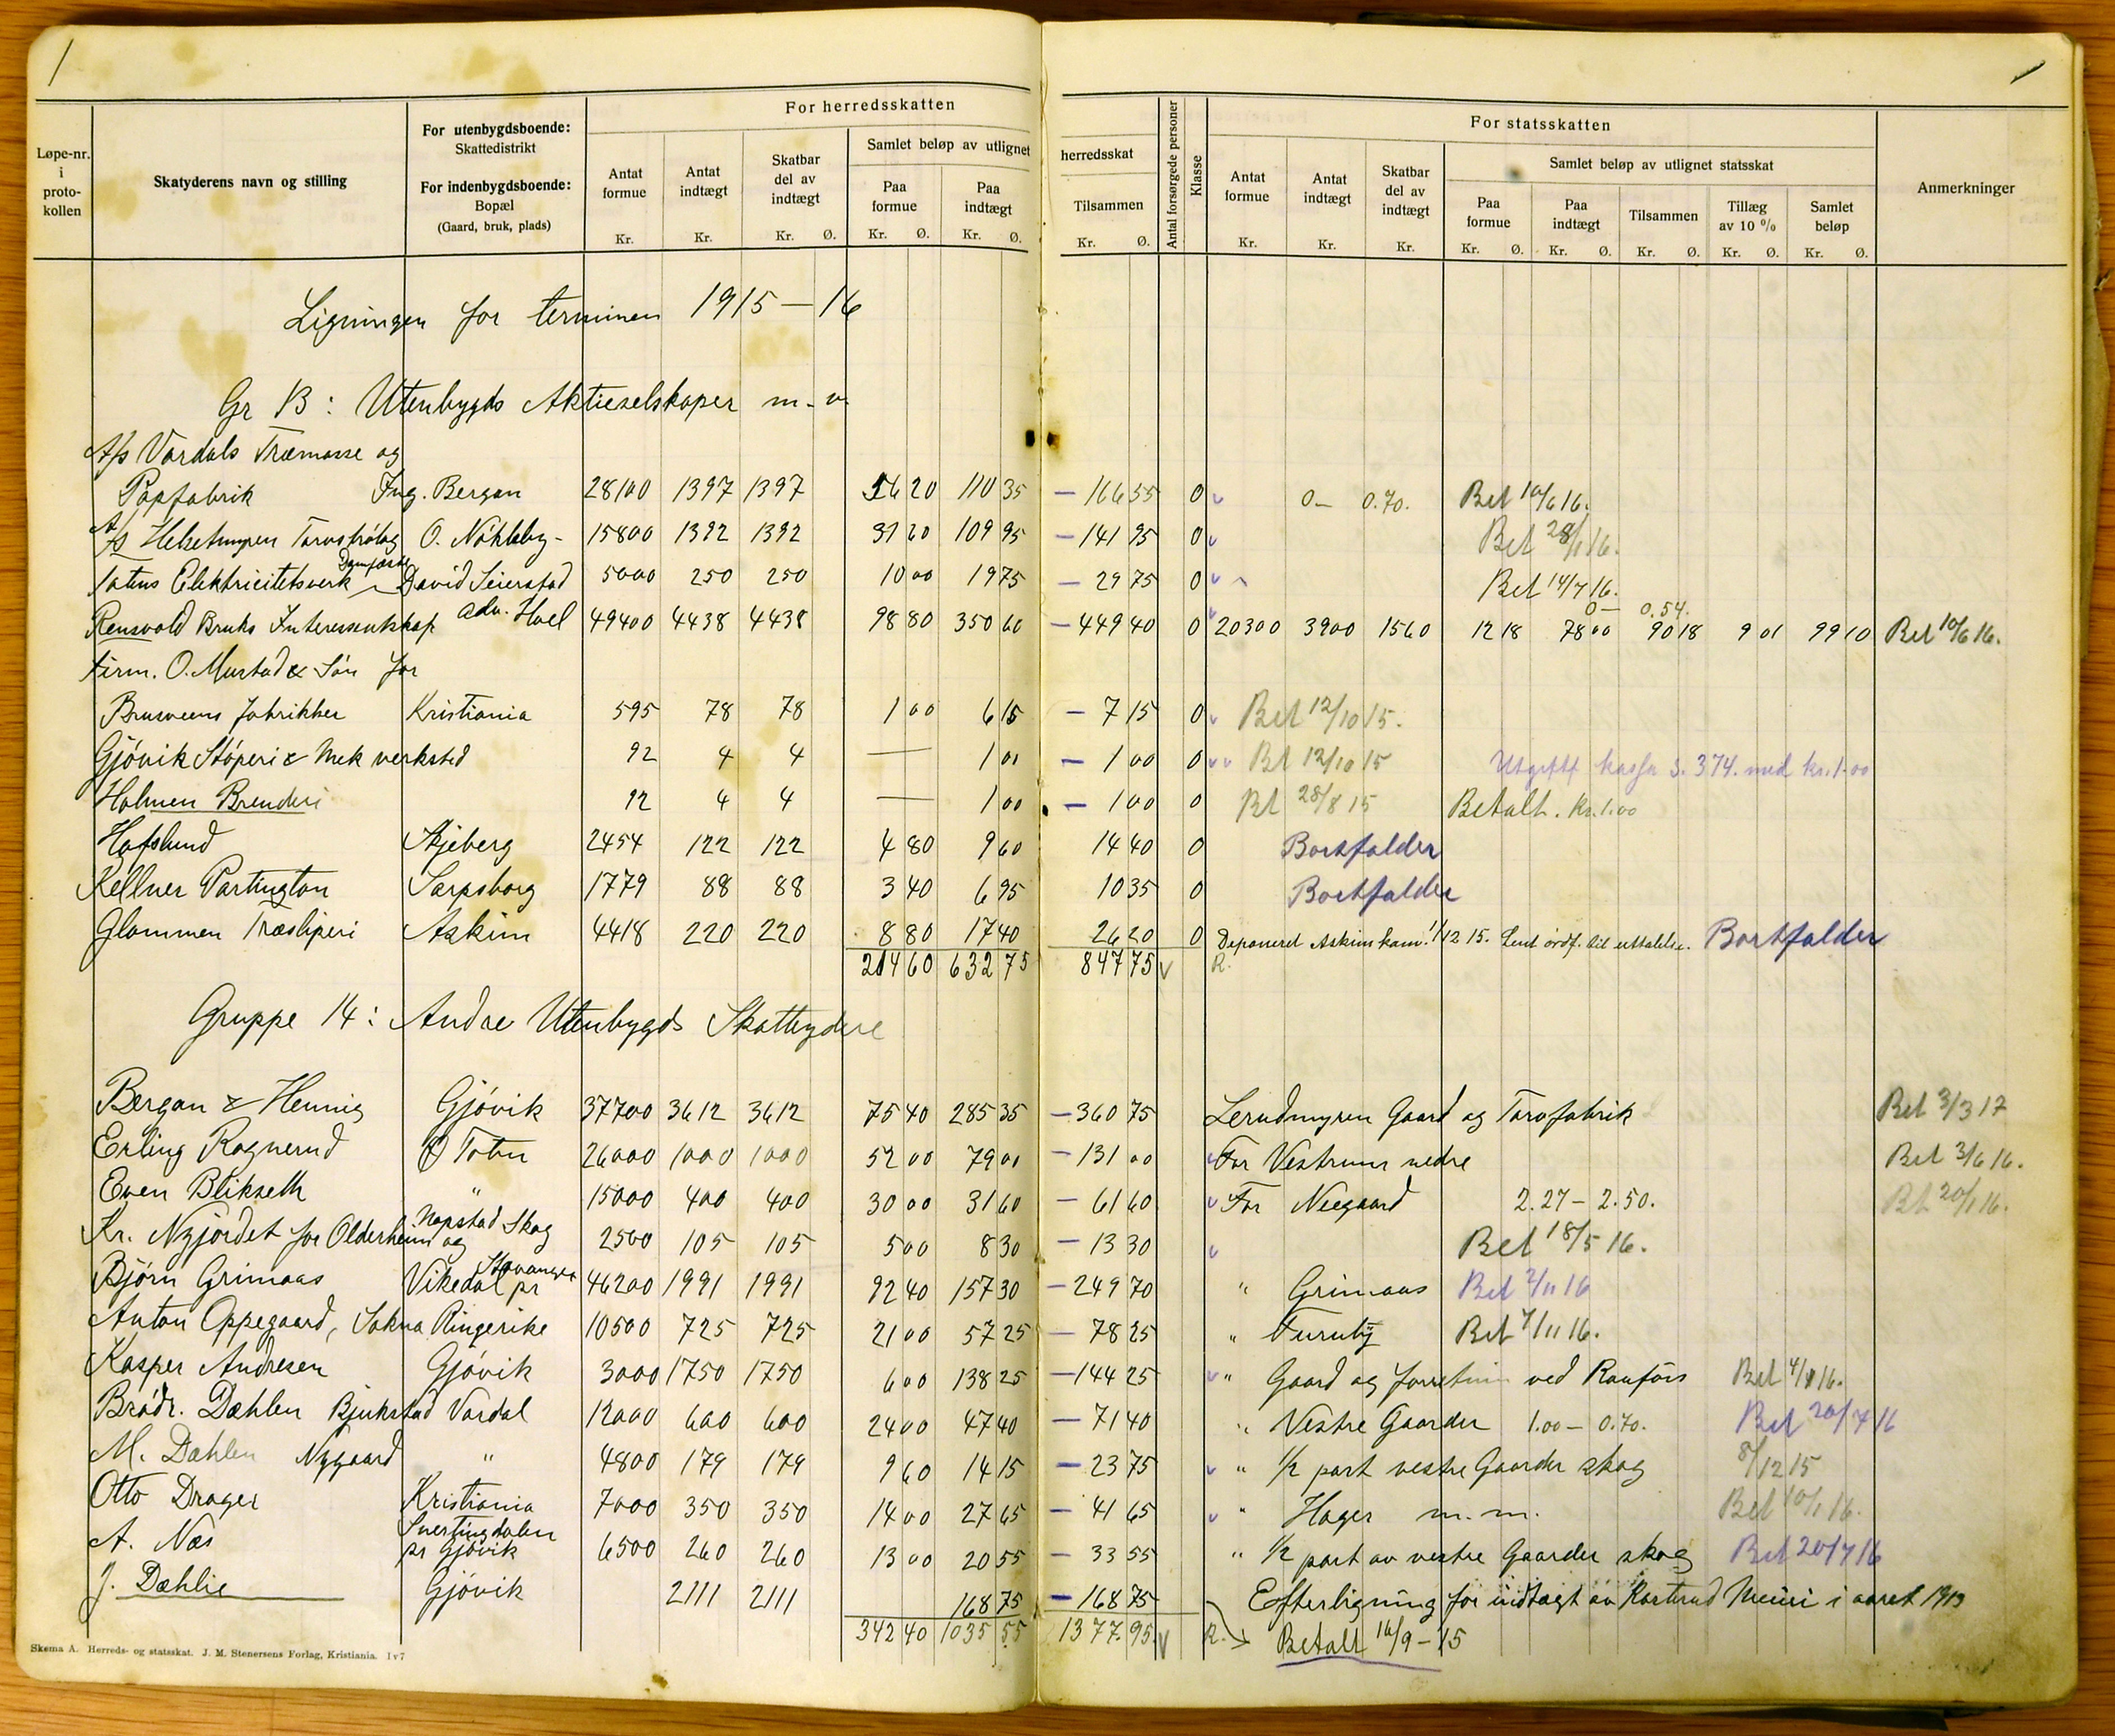 / /
Løpe-nr. i proto-kollen | Skatyderens navn og stilling | For utenbygdsboende: Skattedistrikt For indenbygdsboende: Bopæl (Gaard, bruk, plads) | For herredsskatten | herredsskat | Antal forsørgede personer | Klasse | For statsskatten | Anmerkninger
Antat formue Kr. | Antat indtægt Kr. | Skatbar del av indtægt Kr. Ø. | Samlet beløp av utlignet | Paa formue Kr. Ø. | Paa indtægt Kr. Ø. | Tilsammen Kr. Ø. | Antat formue Kr. | Antat indtægt Kr. | Skatbar del av indtægt Kr. | Samlet beløp av utlignet statsskat | Paa formue Kr. Ø. | Paa indtægt Kr. Ø. | Tilsammen Kr. Ø. | Tillæg av 10 % Kr. Ø. | Samlet beløp Kr. Ø.
Ligningen for terminen 1915 — 16
Gr 13: Utenbygds Aktieselskaper m. v.
A/s Vardals Træmasse og
Papfabrik Ing. Bergan 28100 1397 1397 56 20 110 35 — 166 55 0 0— 0.70. Bet 10/6 16.
A/s Helsetmyren Torvstrølag O. Nøhleby - 15800 1392 1392 31 60 109 95 — 141 95 0 Bet 28/1 16.
Totens Elektricitetsverk David Seierstad 5000 250 250 10 00 19 75 — 29 75 0 Bet 14/7 16.
0— 0.54.
Rensvold Bruks Interessentskap adv. Hoel 49400 4438 4438 98 80 350 60 — 449 40 0 20300 3900 1560 12 18 78 00 90 18 9 01 99 10 Bet 10/6 16.
Firm. O. Mustad & Søn for
Brusveens fabrikker Kristiania 595 78 78 1 00 6 15 — 7 15 0 Bet 12/10 15.
Gjøvik Støperi & Mek verksted 92 4 4 — 1 00 — 1 00 0 Bet 12/10 15 Utgiftf kassa S. 374. med kr. 1.00
Holmen Brenderi 92 4 4 — 1 00 — 1 00 0 Bet 28/8 15 Betalt. Kr. 1.00
Hafslund Skjeberg 2454 122 122 4 80 9 60 14 40 0 Bortfalder
Kellner Partington Sarpsborg 1779 88 88 3 40 6 95 10 35 0 Bortfalder
Glommen Træsliperi Askim 4418 220 220 8 80 17 40 26 20 0 Deponeret Askim kom. 1/12 15. Sent ordf. til uttalelse. Bortfalder
214 60 632 75 847 75 R.
Gruppe 14: Andre Utenbygds Skattydere
Bergan & Hennig Gjøvik 37700 3612 3612 75 40 285 35 — 360 75 Lerudmyren Gaard og Torvfabrik Bet 3/3 17
Erling Rognerud Ø Toten 26000 1000 1000 52 00 79 00 — 131 00 For Vestrum nedre Bet 3/6 16.
Even Blikseth " 15000 400 400 30 00 31 60 — 61 60 For Neegaard 2.27 — 2.50. Bet 20/1 16.
Kr. Nyjordet for Olderheim og Napstad Skog 2500 105 105 5 00 8 30 — 13 30 Bet 18/5 16.
Bjørn Grimaas Vikedal pr Stavanger 46200 1991 1991 92 40 157 30 — 249 70 " Grimaas Bet 2/11 16
Anton Oppegaard, Sokna Ringerike 10500 725 725 21 00 57 25 — 78 25 " Furuby Bet 7/11 16.
Kasper Andresen Gjøvik 3000 1750 1750 6 00 138 25 — 144 25 " Gaard og forretnin ved Raufoss Bet 4/1 16.
Brødr. Dæhlen Bjukstad Vardal 12000 600 600 24 00 47 40 — 71 40 " Vestre Gaarder 1.00 — 0.70. Bet 20/7 16
M. Dæhlen Nygaard " 4800 179 179 9 60 14 15 — 23 75 " 1/2 part vestre Gaarder skog 8/12 15
Otto Drager Kristiania 7000 350 350 14 00 27 65 — 41 65 " Hager m. m. Bet 10/1 16.
A. Næs Snertingdalen pr Gjøvik 6500 260 260 13 00 20 55 — 33 55 " 1/2 part av vestre Gaarder skog Bet 20/7 16
J. Dæhlie Gjøvik 2111 2111 168 75 — 168 75 Efterligning for indtægt av Meieri i aaret 1913
342 40 1035 55 1377.95 R. Betalt 16/9 - 15
Skema A. Herreds- og statsskat. J. M. Stenersens Forlag, Kristiania. 1v7